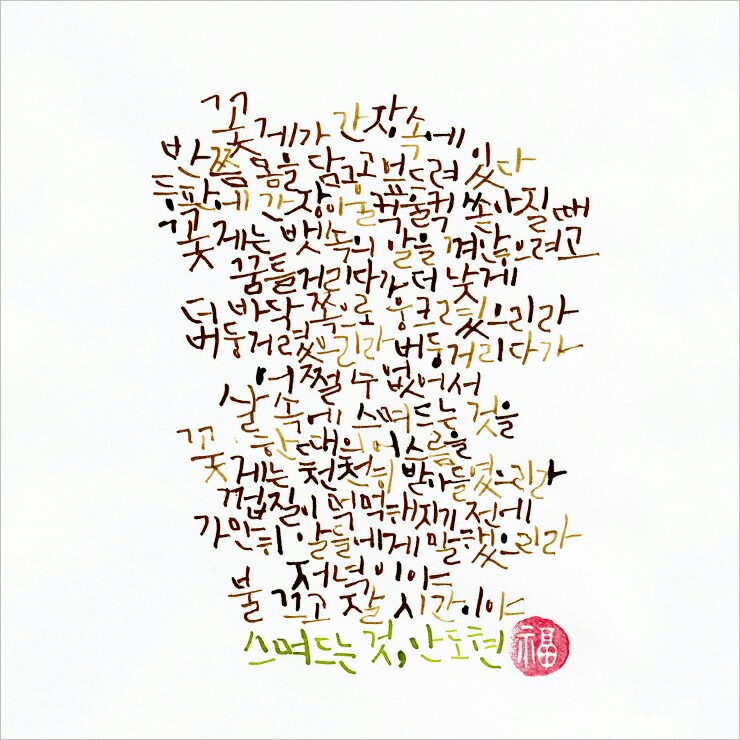 꽃게가 간장 속에
반쯤 몸을 담그고 엎드려 있다
등판에 간장이 울컥울컥 쏟아질 때
꽃게는 뱃속의 알을 껴안으려고
꿈틀거리다가 더 낮게
더 바닥 쪽으로 웅크렸으리라
버둥거렸으리라 버둥거리다가
어쩔 수 없어서
살 속에 스며드는 것을
한때의 어스름을
꽃게는 천천히 받아들였으리라
껍질이 먹먹해지기 전에
가만히 알들에게 말했으리라
저녁이야
불 끄고 잘 시간이야
스며드는 것, 안도현
福